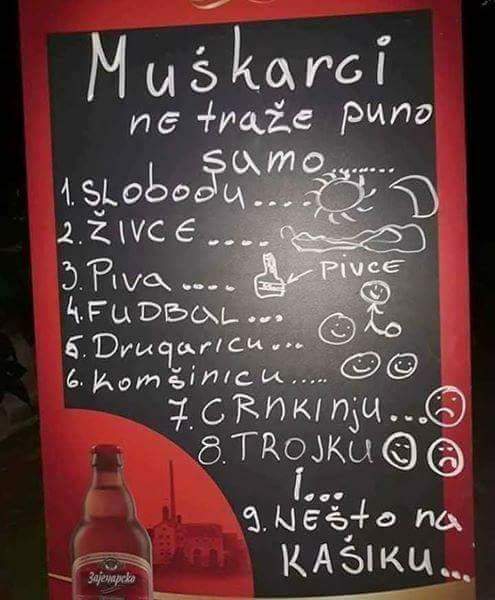 Muškarci
ne traže puno
samo......
1. SLobodu....
2. ŽIVCE....
3. Piva.... PIVCE
4. FUDBAL...
5. Drugaricu...
6. Komšinicu.....
7. CRNKINJU...
8. TROJKU
i...
9. NEŠto na
KAŠIKU...
Зајечарско